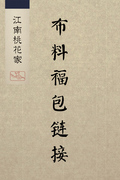 江南桃花家
布料福包链接